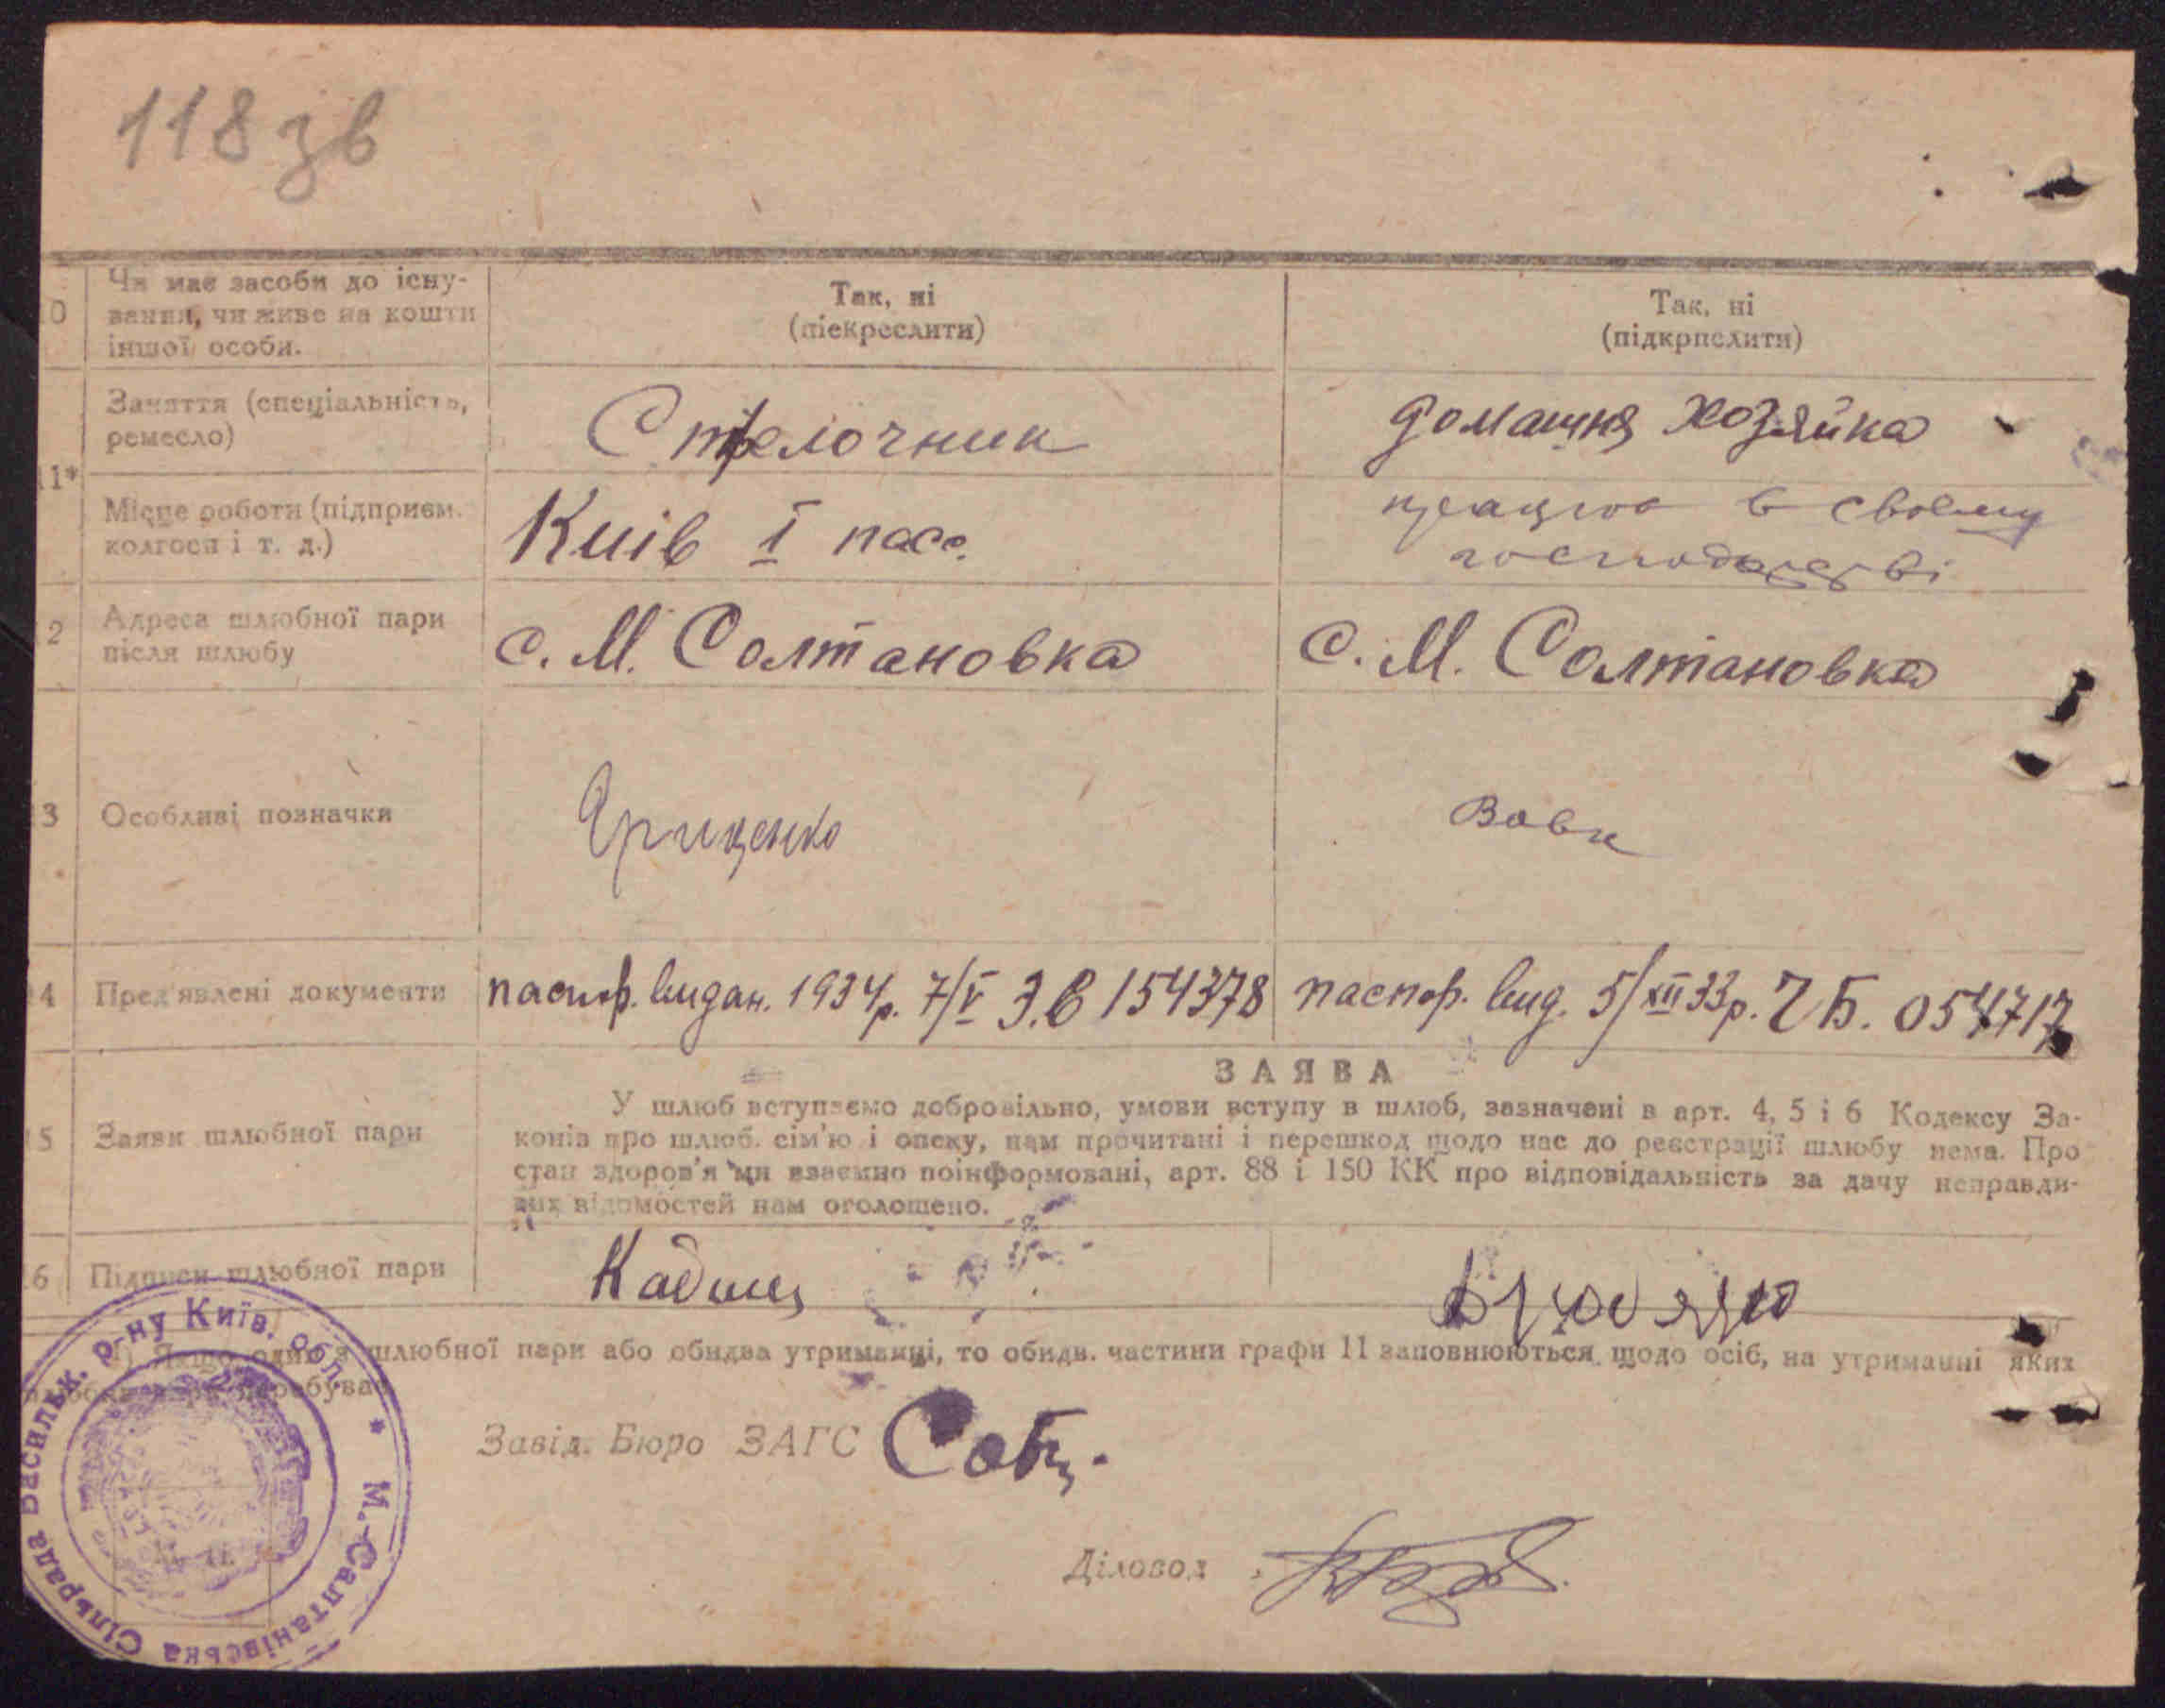 118 зв
10 Чи має засоби до існу-
вання, чи живе на кошти
іншої особи.
Так, ні
(піекреслити)
Так, ні
(підкрпслити)
11*
Заняття (спеціальність,
ремесло)
Стрелочник
домашня хозяйка
Місце роботи (підприєм.
колгосп і т. д.)
Киів I пасс.
працює в своему
господарстві
2 Адреса шлюбної пари
після шлюбу
с. М. Солтановка
с. М. Солтановка
3 Особливі позначки
Грищенко
Вовк
4 Пред'явлені документи
паспор. видан. 1934р. 7/V З.В 154378
паспор. вид. 5/XII 33р. ЧБ. 054717
ЗАЯВА
5 Заяви шлюбної пари
У шлюб вступаємо добровільно, умови вступу в шлюб, зазначені в арт. 4, 5 і 6 Кодексу За-
конів про шлюб. сім'ю і опеку, нам прочитані і перешкод щодо нас до реєстрації шлюбу нема. Про
стан здоров'я ми взаємно поінформовані, арт. 88 і 150 КК про відповідальність за дачу неправди-
вих відомостей нам оголошено.
6 Підписи шлюбної пари
1) Якщо один з шлюбної пари або обидва утриманці, то обидв. частини графи 11 заповнюються щодо осіб, на утриманні яких
перебуває
Завід. Бюро ЗАГС
Діловод
М.-Салтанівська Сільрада Васильк. р-ну Київ. обл.